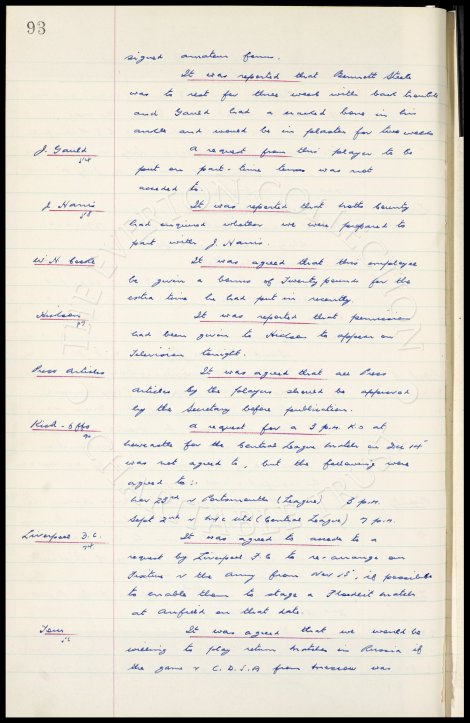 93
signed amateur forms.
It was reported that Bennett Steele
was to rest for three weeks with back trouble
and Gauld had a cracked bone in his
ankle and would be in plaster for two weeks
J. Gauld
A request from this player to be
put on part-time terms was not
acceded to.
J. Harris
It was reported that Notts County
had enquired whether we were prepared to
part with J. Harris.
W. H. Cooke
It was agreed that this employee
be given a bonus of Twenty pounds for the
extra time he had put in recently.
Hickson
It was reported that permission
had been given to Hickson to appear on
Television tonight.
Press Articles
It was agreed that all Press
articles by the players should be approved
by the Secretary before publication.
Kick-Offs
A request for a 2 p.m. K.O at
Newcastle for the Central League match on Dec 14th
was not agreed to, but the following were
agreed to:-
Nov 23rd v Portsmouth (League) 3 p.m.
Sept 2nd v Utd (Central League) 7 p.m.
Liverpool F.C.
It was agreed to accede to a
request by Liverpool F.C to re-arrange our
Fixture v the Army from Nov 15, if possible
to enable them to stage a Floodlit match
at Anfield on that date.
Tour
It was agreed that we would be
willing to play return matches in Russia if
the game v C.D.S.A from Moscow was
THE EVERTON COLLECTION